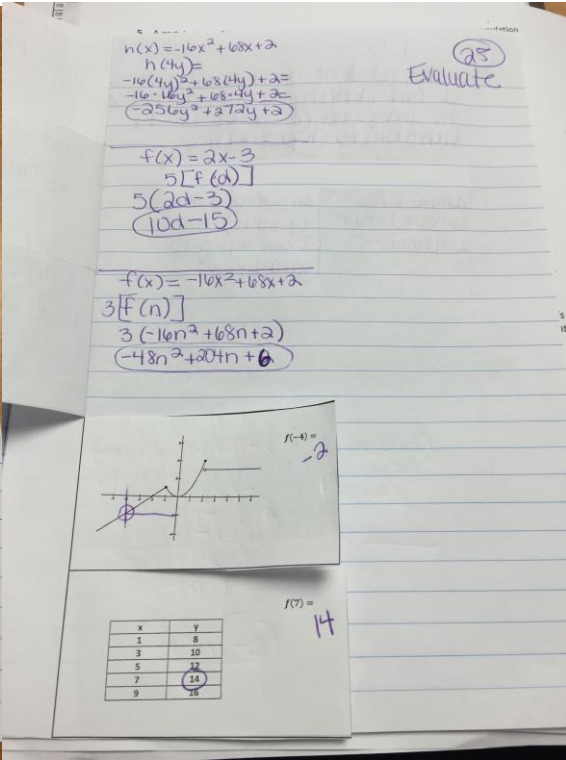 25
Evaluate
h(x) = -16x² + 68x + 2
h(4y) =
-16(4y)² + 68(4y) + 2 =
-16 · 16y² + 68 · 4y + 2 =
-256y² + 272y + 2
f(x) = 2x - 3
5[f(d)]
5(2d - 3)
10d - 15
f(x) = -16x² + 68x + 2
3[f(n)]
3(-16n² + 68n + 2)
-48n² + 204n + 6
f(-4) =
-2
f(7) =
14
x y
1 8
3 10
5 12
7 14
9 16